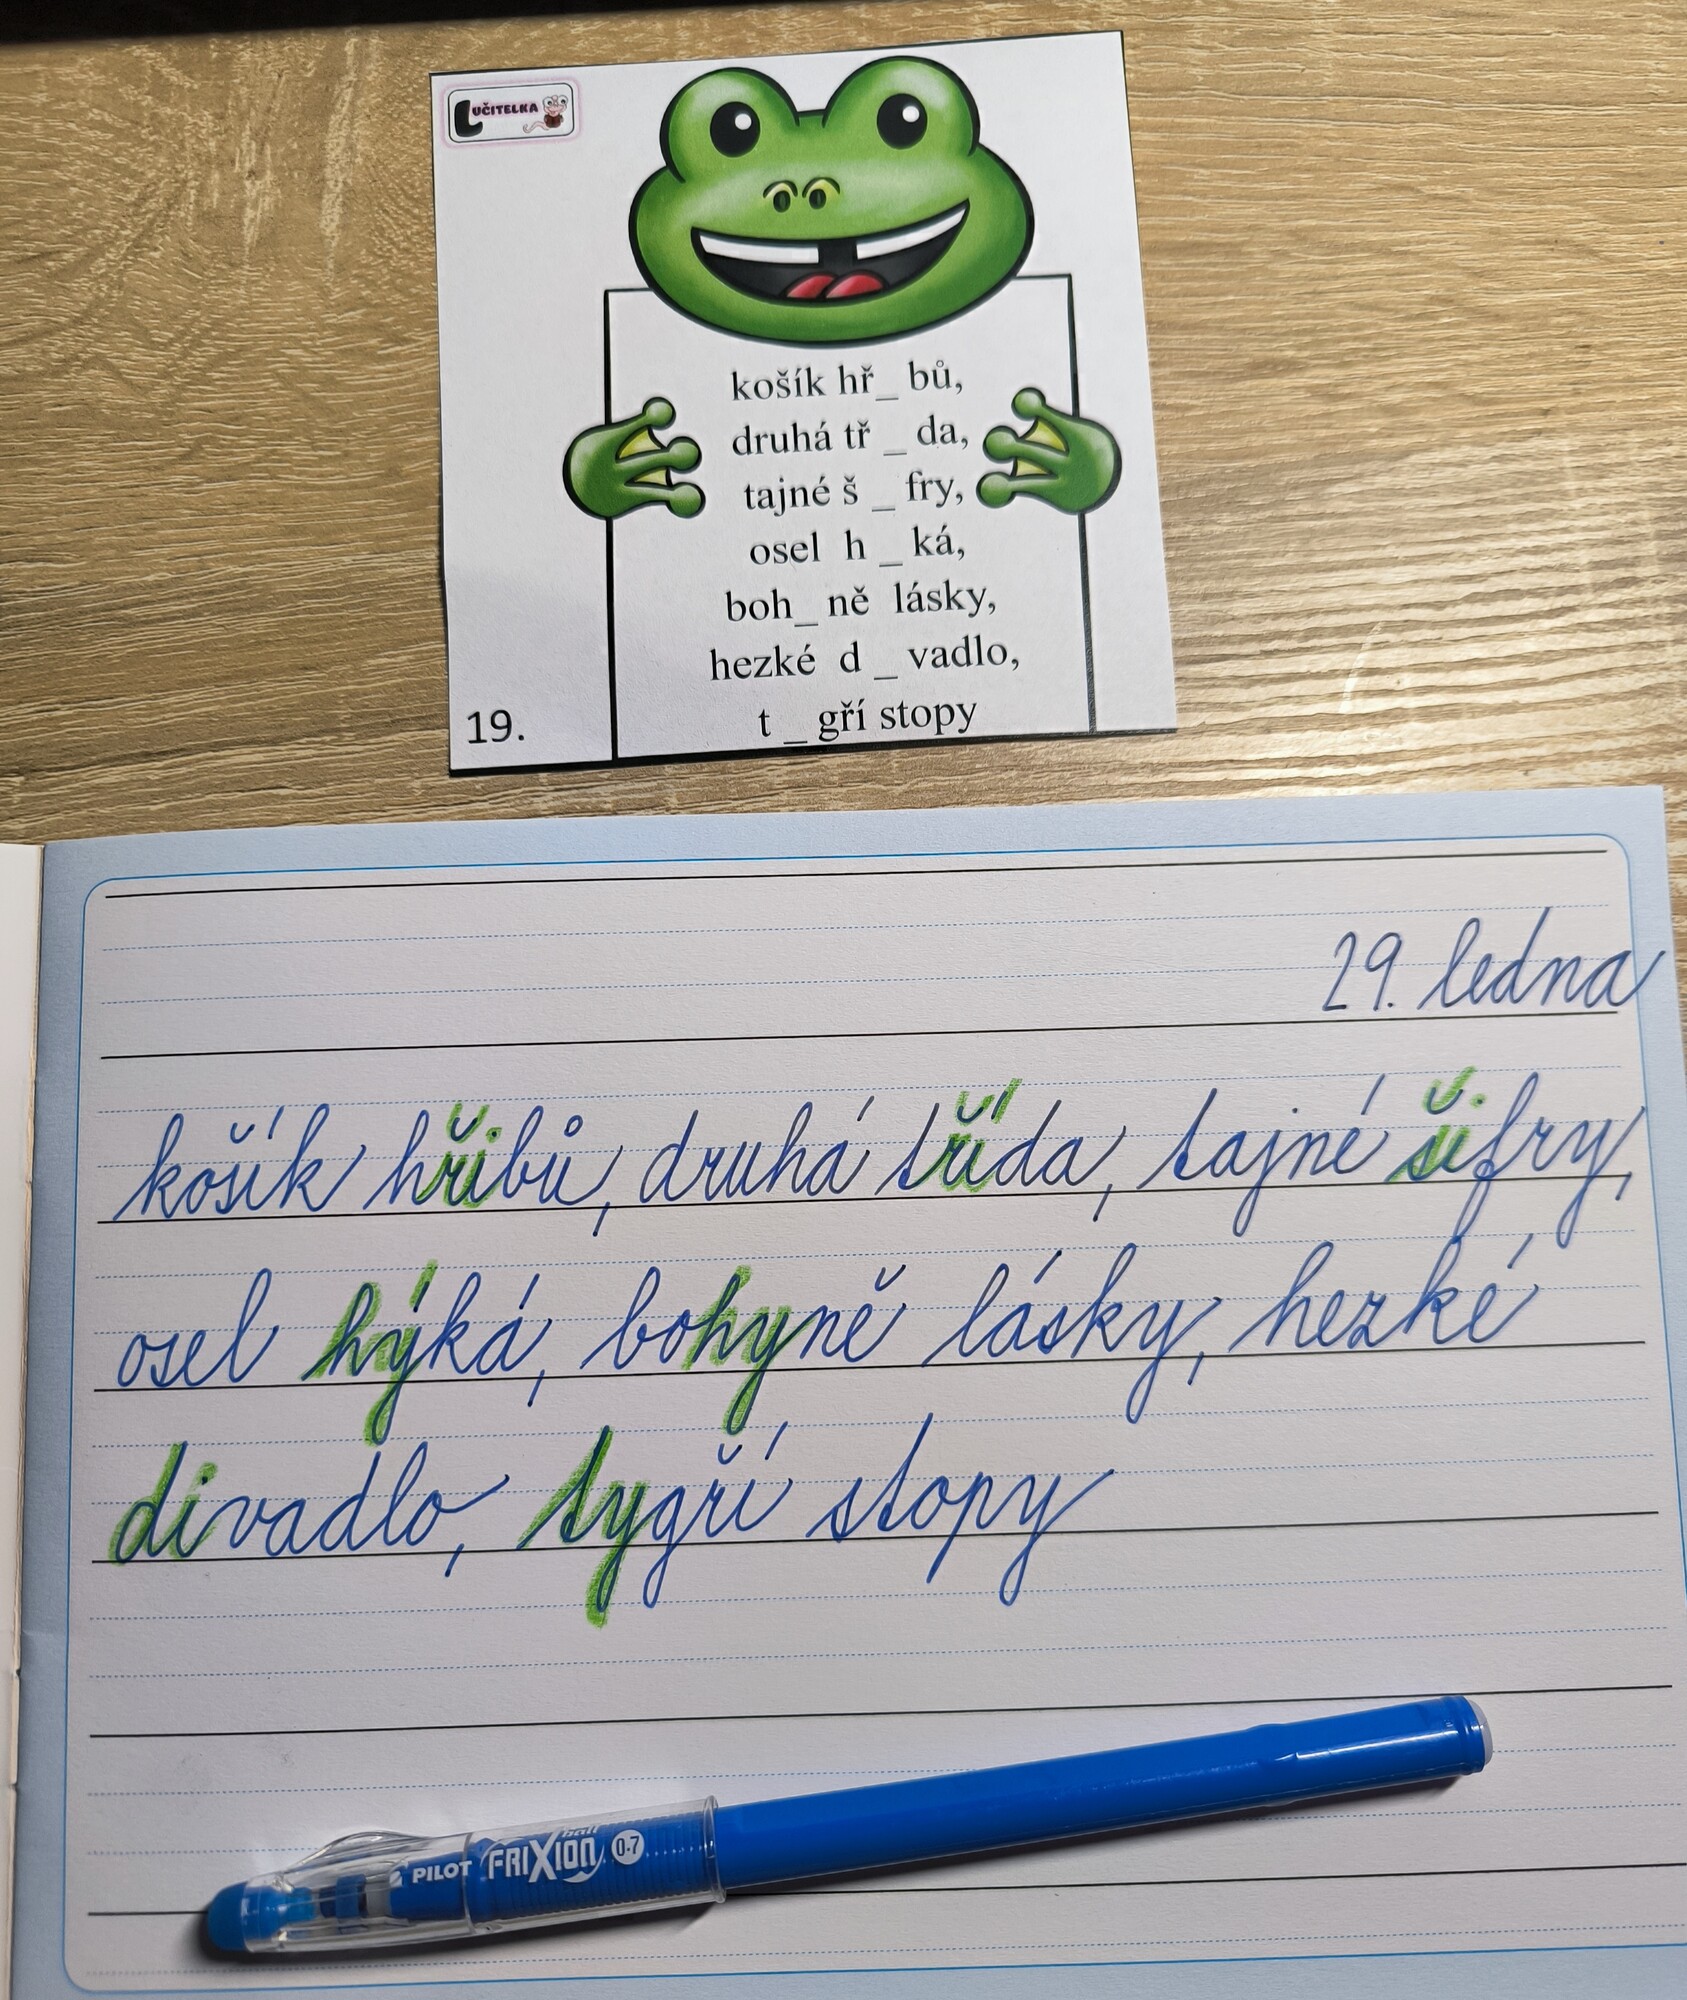 UČITELKA
košík hř_bů,
druhá tř _ da,
tajné š _ fry,
osel h _ ká,
boh_ ně lásky,
hezké d _ vadlo,
t _ gří stopy
19.
29. ledna
košík hřibů, druhá třída, tajné šifry,
osel hýká, bohyně lásky, hezké
divadlo, tygří stopy
PILOT FRIXION ball 0.7